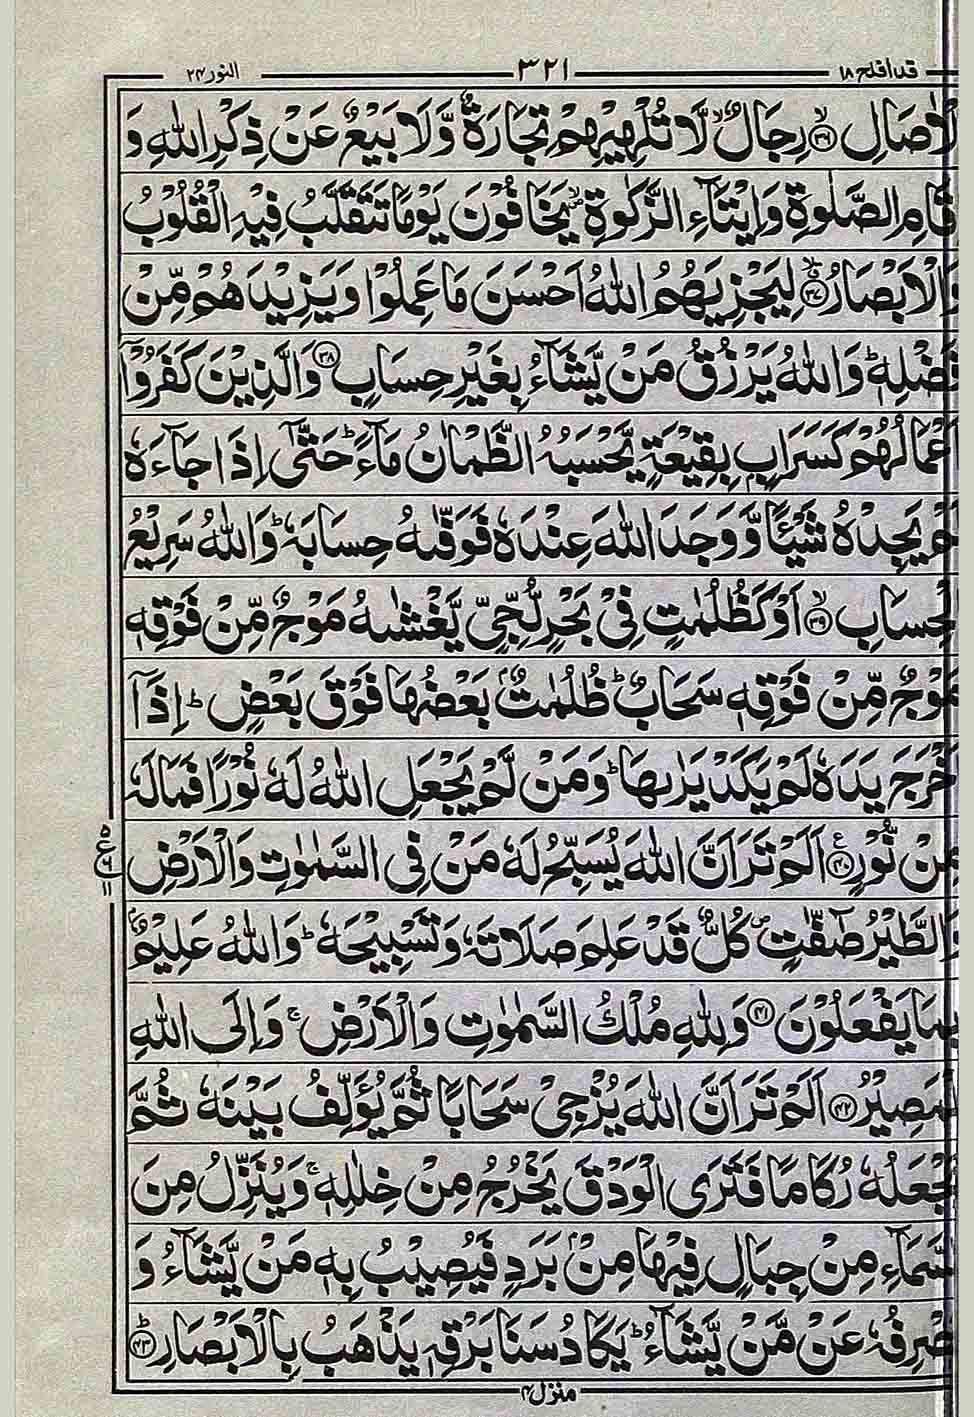 قد افلح ۱۸ ۳۲۱ النور ۲۴
لْاٰصَالِ ﴿۳۶﴾ۙ رِجَالٌ ۙ لَّا تُلْهِیْهِمْ تِجَارَةٌ وَّلَا بَیْعٌ عَنْ ذِكْرِ اللّٰهِ وَ
قَامِ الصَّلٰوةِ وَاِیْتَآءِ الزَّكٰوةِ ۪ۙ یَخَافُوْنَ یَوْمًا تَتَقَلَّبُ فِیْهِ الْقُلُوْبُ
وَالْاَبْصَارُ ﴿۳۷﴾ۗۙ لِیَجْزِیَهُمُ اللّٰهُ اَحْسَنَ مَا عَمِلُوْا وَیَزِیْدَهُمْ مِّنْ
فَضْلِهٖ ؕ وَاللّٰهُ یَرْزُقُ مَنْ یَّشَآءُ بِغَیْرِ حِسَابٍ ﴿۳۸﴾ وَالَّذِیْنَ كَفَرُوْۤا
اَعْمَالُهُمْ كَسَرَابٍۭ بِقِیْعَةٍ یَّحْسَبُهُ الظَّمْاٰنُ مَآءً ؕ حَتّٰۤی اِذَا جَآءَهٗ
لَمْ یَجِدْهُ شَیْـًٔا وَّوَجَدَ اللّٰهَ عِنْدَهٗ فَوَفّٰىهُ حِسَابَهٗ ؕ وَاللّٰهُ سَرِیْعُ
لْحِسَابِ ﴿۳۹﴾ۙ اَوْ كَظُلُمٰتٍ فِیْ بَحْرٍ لُّجِّیٍّ یَّغْشٰىهُ مَوْجٌ مِّنْ فَوْقِهٖ
مَوْجٌ مِّنْ فَوْقِهٖ سَحَابٌ ؕ ظُلُمٰتٌۢ بَعْضُهَا فَوْقَ بَعْضٍ ؕ اِذَاۤ
اَخْرَجَ یَدَهٗ لَمْ یَكَدْ یَرٰىهَا ؕ وَمَنْ لَّمْ یَجْعَلِ اللّٰهُ لَهٗ نُوْرًا فَمَا لَهٗ
مِنْ نُّوْرٍ ﴿۴۰﴾ اَلَمْ تَرَ اَنَّ اللّٰهَ یُسَبِّحُ لَهٗ مَنْ فِی السَّمٰوٰتِ وَالْاَرْضِ
ع ۵ ۶ ۱۱
وَالطَّیْرُ صٰٓفّٰتٍ ؕ كُلٌّ قَدْ عَلِمَ صَلَاتَهٗ وَتَسْبِیْحَهٗ ؕ وَاللّٰهُ عَلِیْمٌۢ
بِمَا یَفْعَلُوْنَ ﴿۴۱﴾ وَلِلّٰهِ مُلْكُ السَّمٰوٰتِ وَالْاَرْضِ ۚ وَاِلَی اللّٰهِ
لْمَصِیْرُ ﴿۴۲﴾ اَلَمْ تَرَ اَنَّ اللّٰهَ یُزْجِیْ سَحَابًا ثُمَّ یُؤَلِّفُ بَیْنَهٗ ثُمَّ
یَجْعَلُهٗ رُكَامًا فَتَرَی الْوَدْقَ یَخْرُجُ مِنْ خِلٰلِهٖ ۚ وَیُنَزِّلُ مِنَ
السَّمَآءِ مِنْ جِبَالٍ فِیْهَا مِنْۢ بَرَدٍ فَیُصِیْبُ بِهٖ مَنْ یَّشَآءُ وَ
یَصْرِفُهٗ عَنْ مَّنْ یَّشَآءُ ؕ یَكَادُ سَنَا بَرْقِهٖ یَذْهَبُ بِالْاَبْصَارِ ﴿۴۳﴾ؕ
منزل ۴